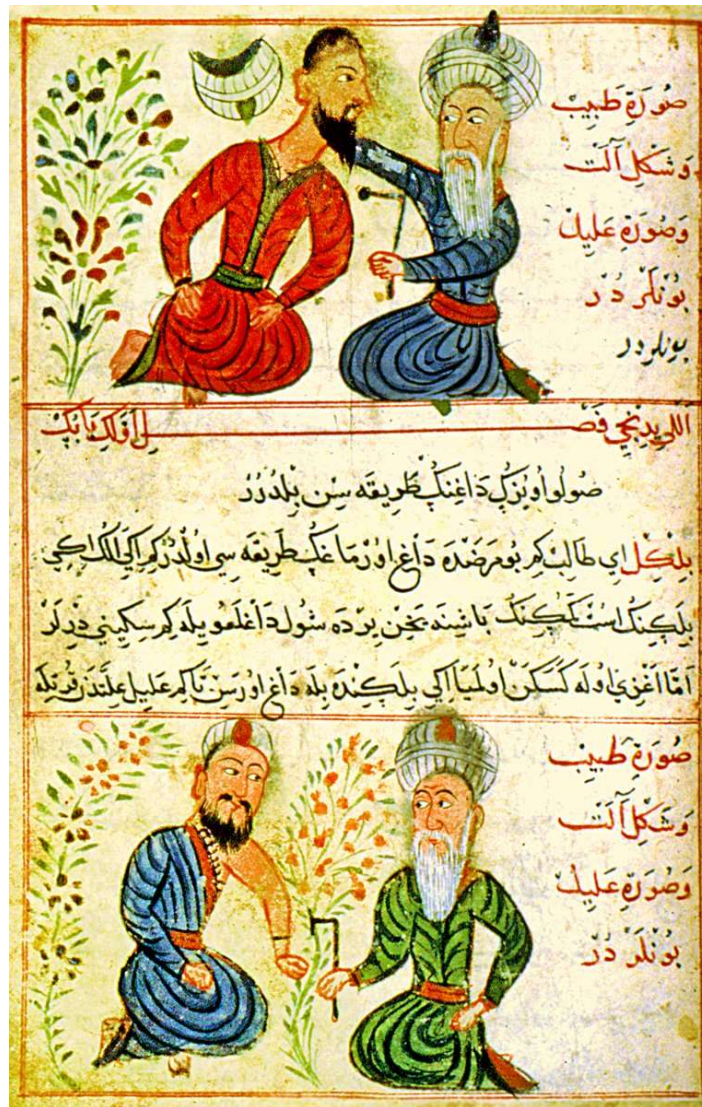 صورة طبيب
وشكل آلت
وصورة عليل
بونلر در
بونلر در
اللي يدنجي فصل اولك بابك
صولو اويزك داغنك طريقه سن بلدرر
بلكل اي طالب كم بو مرضده داغ اورماغك طريقه سي اولدر كم اكي الك اكي
بلكنك است باشنه يخن يرده شول داغلغويله كم سكيني درلر
اما اغزي اوله كسكن اولميا اكي بلكنده بله داغ اورسن تا كم عليل علتدن قرتله
صورة طبيب
وشكل آلت
وصورة عليل
بونلر در